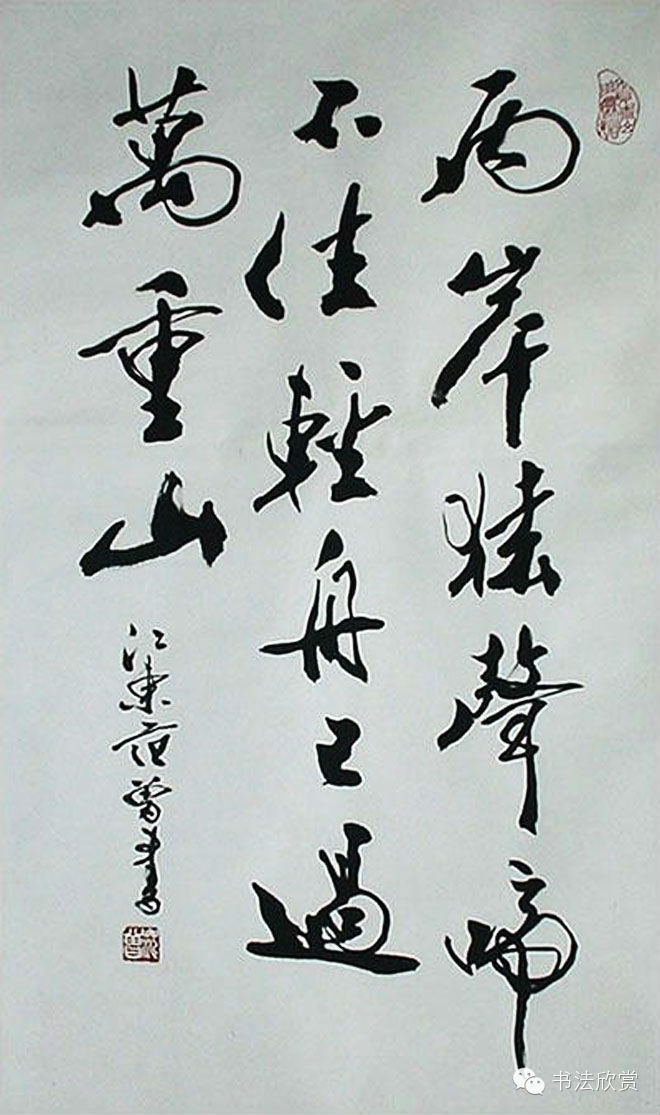 兩岸猿聲啼
不住輕舟已過
萬重山
江東范曾書
范曾
书法欣赏